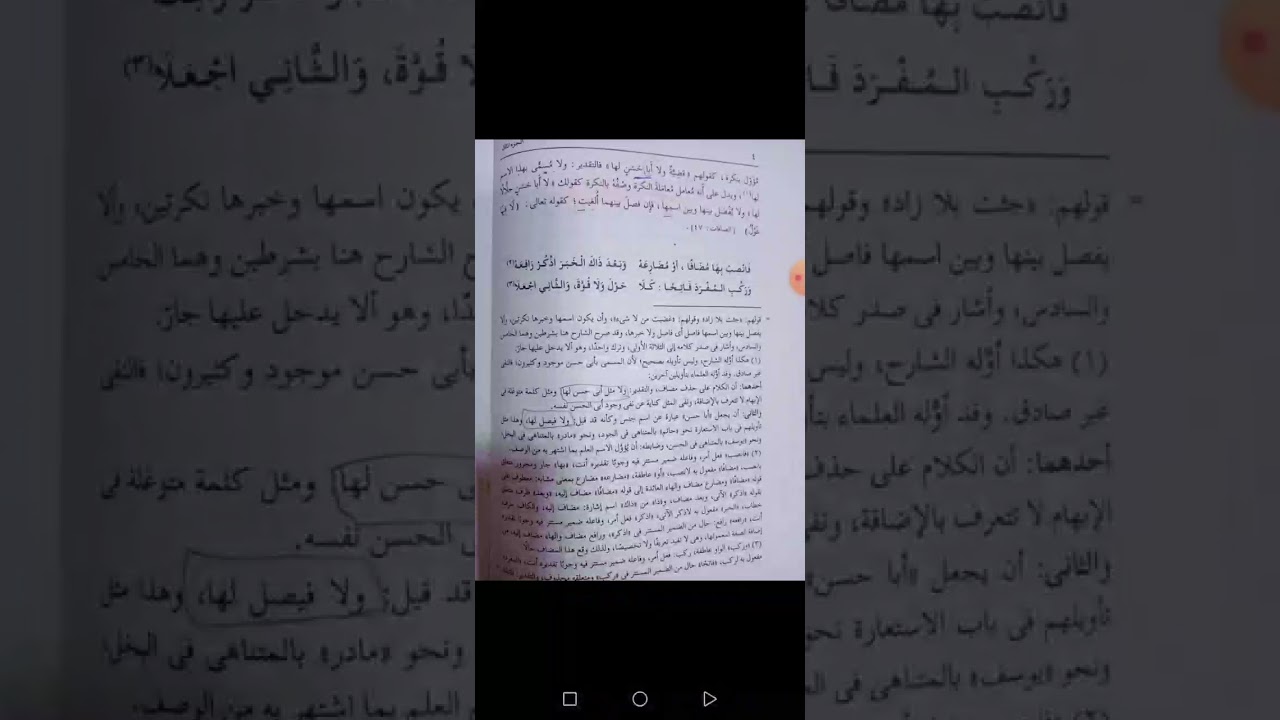 مُؤَوَّل بنكرة، كقولهم «قضيةٌ ولا أبا حَسَنٍ لها» فالتقدير: ولا مُسَمَّى بهذا الاسم
لها(١)، ويدل على أنه مُعَامل مُعَامَلَةَ النكرة وصْفُهُ بالنكرة كقولك «لا أبا حَسَنٍ حلَّالًا
لها، ولا يُفْصَل بينها وبين اسمها، فإن فصل بينهما أُلغيت؛ كقوله تعالى: (لا فيها
غَوْلٌ) [الصافات: ٤٧].
فَانْصِبْ بِهَا مُضَافًا، أوْ مُضَارِعَهْ وَبَعْدَ ذَاكَ الْخَبَرَ اذْكُرْ رَافِعَهْ(٢)
وَرَكِّبِ الْمُفْرَدَ فَاتِحًا: كَلَا حَوْلَ وَلَا قُوَّةَ، وَالثَّانِي اجْعَلَا(٣)
= قولهم: «جئت بلا زاد» وقولهم: «غضبت من لا شيء»، وأن يكون اسمها وخبرها نكرتين، وألا
يفصل بينها وبين اسمها فاصل أى فاصل ولا خبرها، وقد صرح الشارح هنا بشرطين وهما الخامس
والسادس، وأشار فى صدر كلامه إلى الثلاثة الأولى، وترك واحدًا، وهو ألا يدخل عليها جار.
(١) هكذا أوَّله الشارح، وليس تأويله بصحيح؛ لأن المسمى بأبى حسن موجود وكثيرون؛ فالنفى
غير صادق. وقد أوَّله العلماء بتأويلين آخرين:
أحدهما: أن الكلام على حذف مضاف، والتقدير: ولا مثل أبى حسن لها، ومثل كلمة متوغلة فى
الإبهام لا تتعرف بالإضافة، ونفى المثل كناية عن نفى وجود أبى الحسن نفسه.
والثانى: أن يجعل «أبا حسن» عبارة عن اسم جنس وكأنه قد قيل: ولا فيصل لها، وهذا مثل
تأويلهم فى باب الاستعارة نحو «حاتم» بالمتناهى فى الجود، ونحو «مادر» بالمتناهى فى البخل؛
ونحو «يوسف» بالمتناهى فى الحسن، وضابطه: أن يُؤوَّل الاسم العلم بما اشتهر به من الوصف.
(٢) «فانصب» فعل أمر، وفاعله ضمير مستتر فيه وجوبًا تقديره أنت، «بها» جار ومجرور متعلق
بانصب، «مضافًا» مفعول به لانصب، «أو» عاطفة، «مضارعه» مضارع بمعنى مشابه: معطوف على
قوله «مضافًا» ومضارع مضاف والهاء العائدة إلى قوله «مضافًا» مضاف إليه، «وبعد» ظرف متعلق
بقوله «اذكر» الآتى، وبعد مضاف، و«ذا» من «ذاك» اسم إشارة: مضاف إليه، والكاف حرف
خطاب، «الخبر» مفعول به لاذكر الآتى، «اذكر» فعل أمر، وفاعله ضمير مستتر فيه وجوبًا تقديره
أنت، «رافعه» رافع: حال من الضمير المستتر فى «اذكر»، ورافع مضاف والهاء مضاف إليه، من
إضافة الصفة لمعمولها، وهى لا تفيد تعريفًا ولا تخصيصًا، ولذلك وقع هذا المضاف حالًا.
(٣) «وركب» الواو عاطفة، ركب: فعل أمر، وفاعله ضمير مستتر فيه وجوبًا تقديره أنت، «المفرد»
مفعول به لركب، «فاتحًا» حال من الضمير المستتر فى «ركب»